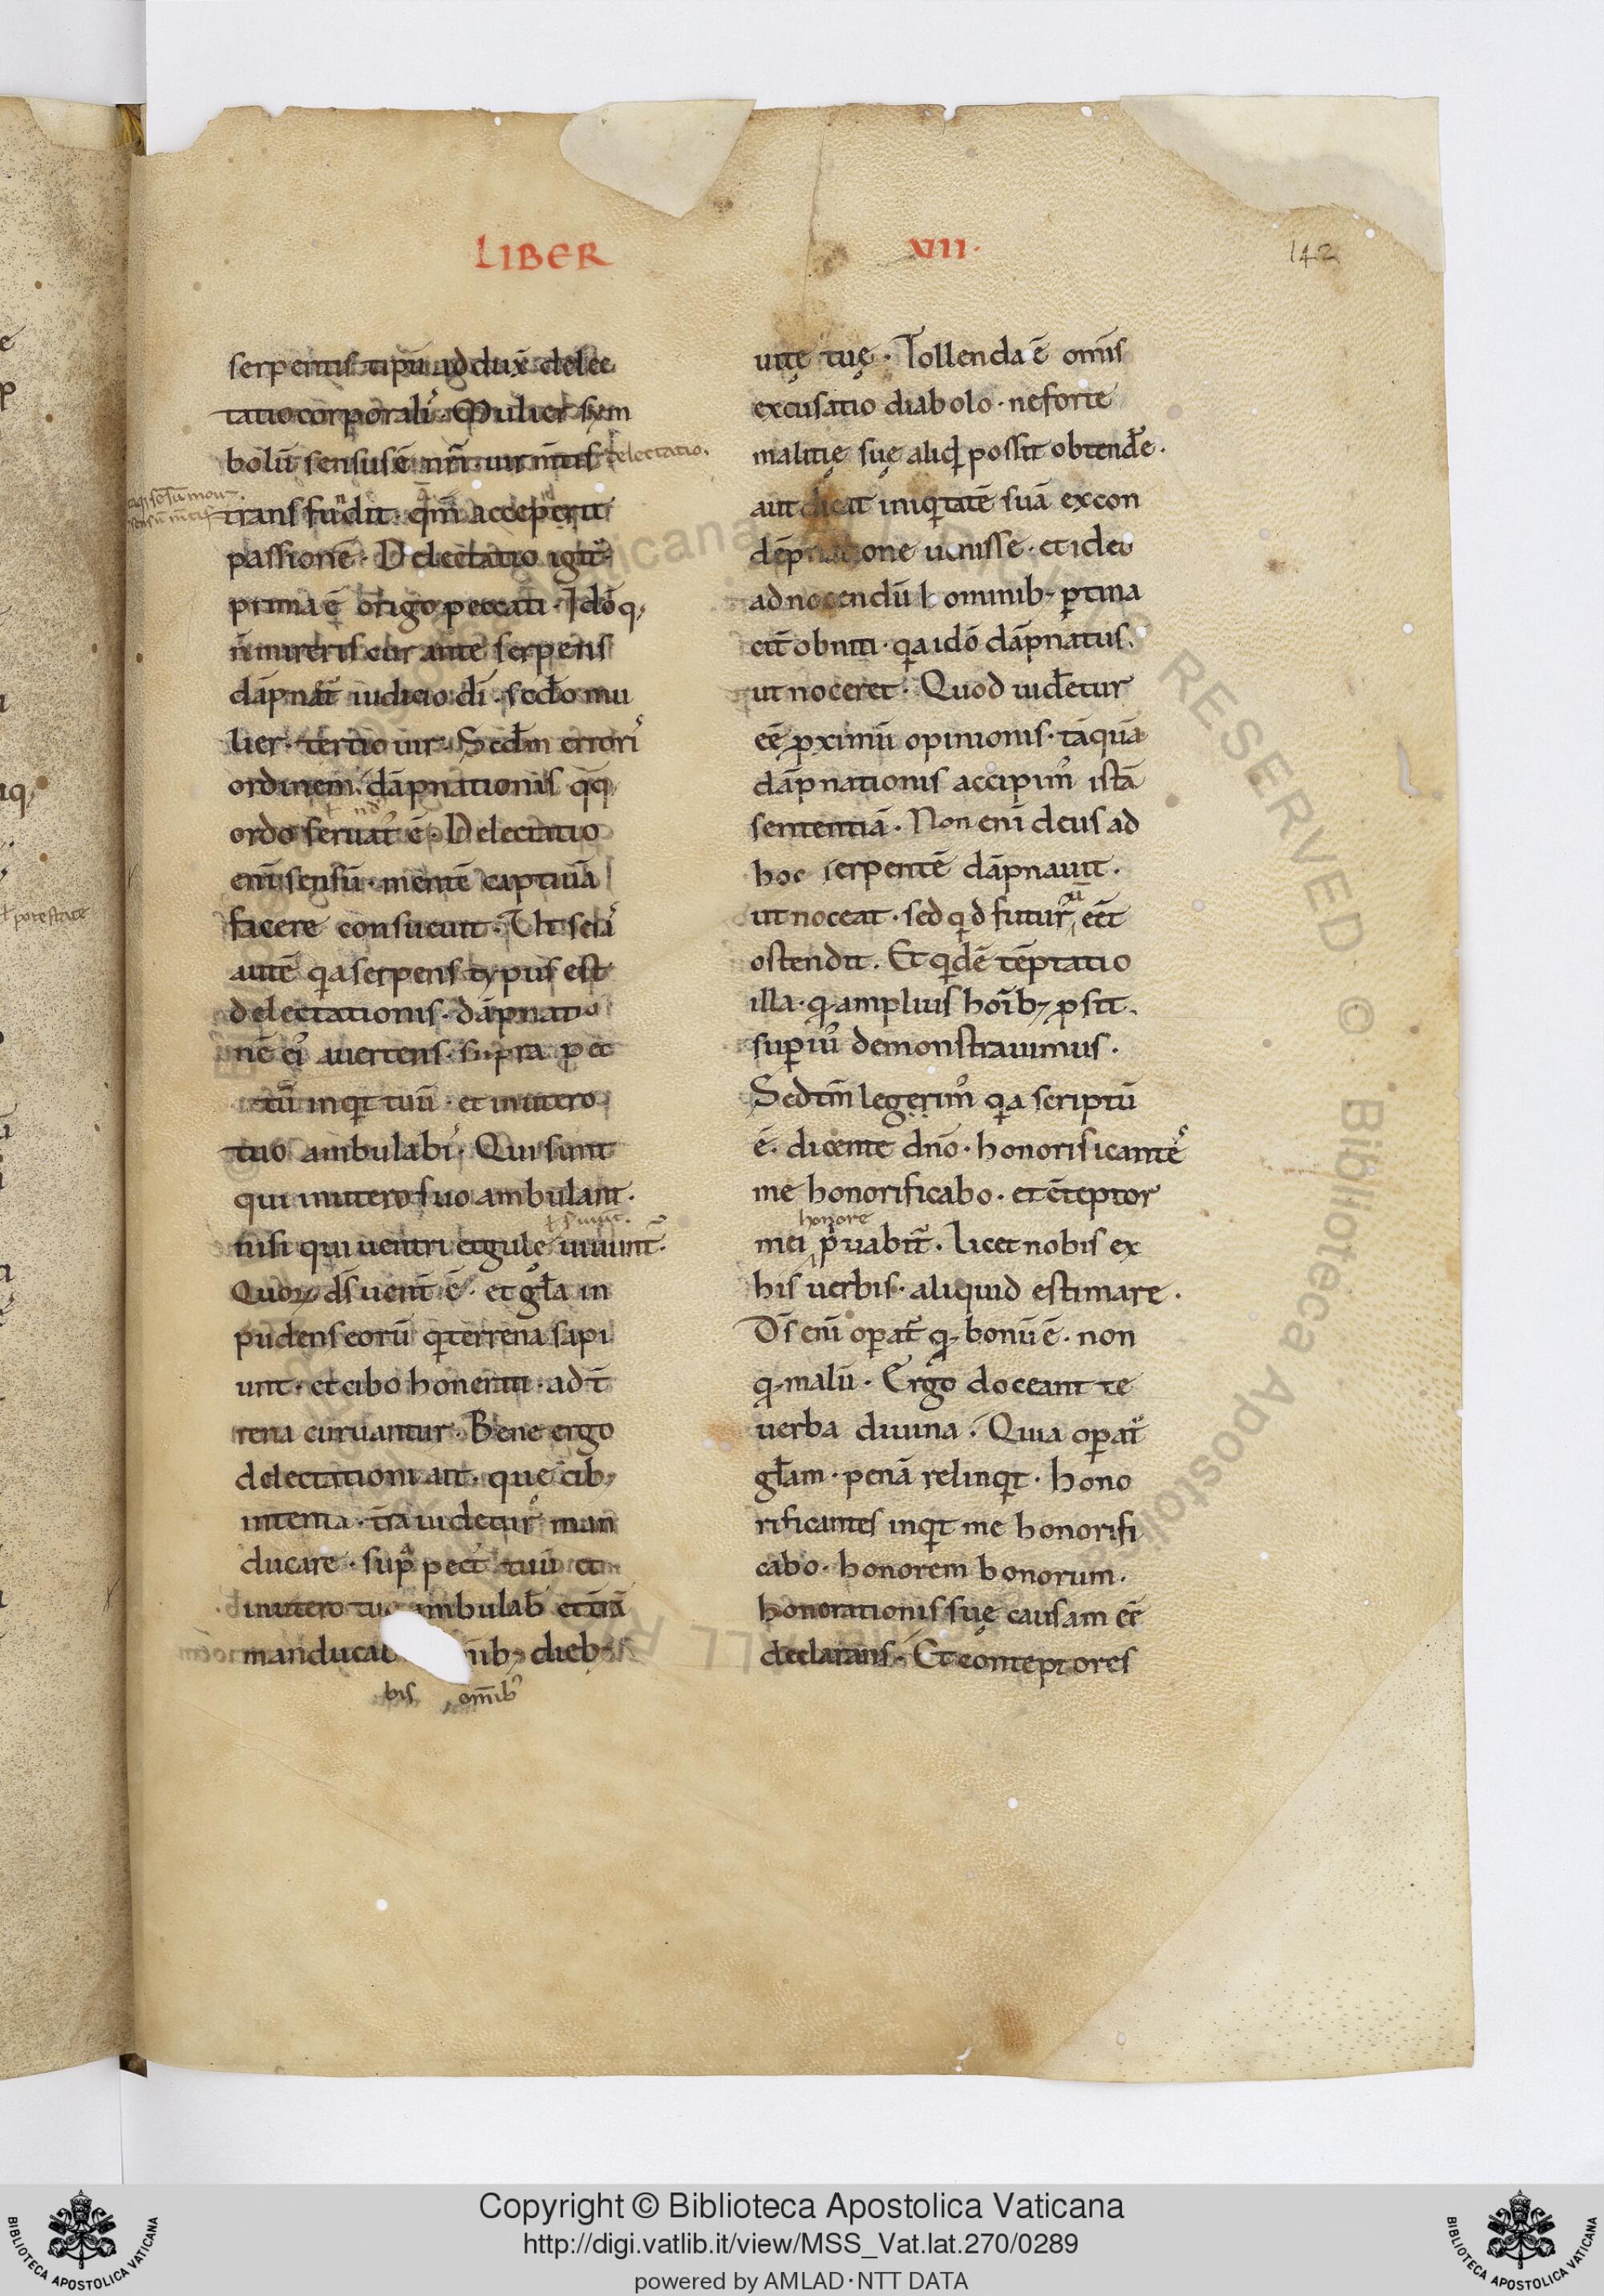 LIBER
XIII·
142
serpentis tipū ad dux̄ delec
tatio corporaliˢ· Mulier sym
bolū sensus ē nr̄i· uir m̄tis
delectatio.
trans fudit qm̄ acceperit
passionē· Delectatio igit̄
prima ē origo peccati· Idō q;
n̄ mireris cur ante serpens
dāpnat̄ iudicio dī· sedo mu
lier· tertio uir· Sedm erroriˢ
ordinem dāpnationis q̄q;
ordo seruat᷒ ē· Delectatio
enī sensū· mentē captiuā
facere consueuit· Ut sciaˢ
autē qa serpens typus est
delectationis· dāpnatio
nē ei᷒ auertens· supra pec
t᷒ inqt tuū· et in utero
tuo ambulabiˢ· Qui sunt
qui in utero suo ambulant·
nisi qui uentri et gulę uiuunt·
Quoꝝ ds̄ uent̄ ē· et gl̄a in
pudens eorū q terrena sapi
unt· et cibo honerati· ad t̄
rena curuantur· Bene ergo
delectationi ait· que cib;
intenta· t̄rā uidetur man
ducare· sup pect᷒ tuū et
in utero tuo ambulab et t̄rā
manducab nib; dieb;
bis omīb᷒
uitę tuę· Tollenda ē omīs
excusatio diabolo· ne forte
malitię suę aliqd possit obtendere·
aut dicat iniqtatē suā ex con
dēpnatione uenisse· et ideo
ad nocendū hominib; ptina
cit̄ obniti· qa idō dāpnatus.
ut noceret· Quod uidetur
eē pximū opinionis· tāquā
dāpnationis accipim᷒ istā
sententiā· Non enī deus ad
hoc serpentē dāpnauit·
ut noceat· sed qd futurū eēt
ostendit· Et qdē tēptatio
illa· q amplius hoīb; psit.
superi᷒ demonstrauimus·
Sed tm̄ legerim᷒ qa scriptū
ē· dicente dn̄o· honorificanteˢ
me honorificabo· et c̄teptor
honore
mei p̱uabit᷒· Licet nobis ex
his uerbis· aliquid estimare·
Ds̄ enī operat᷒ q bonū ē· non
q malū· Ergo doceant te
uerba diuina· Quia operat᷒
gl̄am· penā relinqt· hono
rificantes inqt me honorifi
cabo· honorem bonorum·
honorationis suę causam eē
declarans· Et conteptores
Copyright © Biblioteca Apostolica Vaticana
http://digi.vatlib.it/view/MSS_Vat.lat.270/0289
powered by AMLAD·NTT DATA
BIBLIOTECA APOSTOLICA VATICANA
BIBLIOTECA APOSTOLICA VATICANA